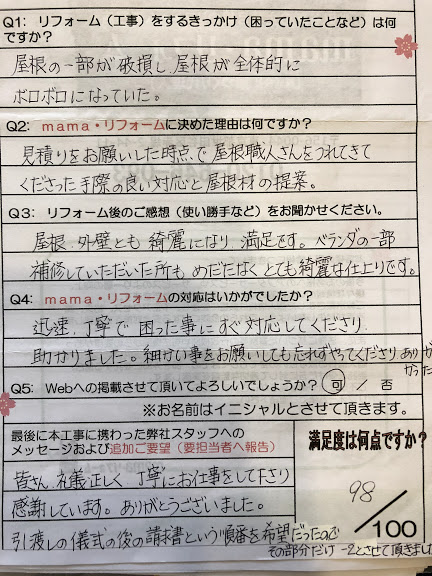 Q1: リフォーム（工事）をするきっかけ（困っていたことなど）は何
ですか？
屋根の一部が破損し、屋根が全体的に
ボロボロになっていた。
Q2: mama・リフォームに決めた理由は何ですか？
見積りをお願いした時点で屋根職人さんをつれてきて
くださった手際の良い対応と屋根材の提案。
Q3: リフォーム後のご感想（使い勝手など）をお聞かせください。
屋根、外壁とも綺麗になり満足です。ベランダの一部
補修していただいた所も、めだたなくとても綺麗な仕上りです。
Q4: mama・リフォームの対応はいかがでしたか？
迅速、丁寧で困った事にすぐ対応してくださり、
助かりました。細かい事をお願いしても忘れずやってくださりありが
たかった
Q5: Webへの掲載させて頂いてよろしいでしょうか？ 可 / 否
※お名前はイニシャルとさせて頂きます。
最後に本工事に携わった弊社スタッフへの
メッセージおよび追加ご要望（要担当者へ報告）
皆さん、礼儀正しく、丁寧にお仕事をして下さり
感謝しています。ありがとうございました。
引渡しの儀式の後の請求書という順番を希望だったので
その部分だけ -2とさせて頂きました
満足度は何点ですか？
98/100